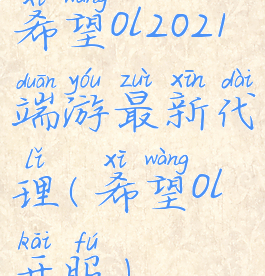 xī wàng
希望Ol2021
duān yóu zuì xīn dài
端游最新代
lǐ xī wàng
理(希望Ol
kāi fú
开服)